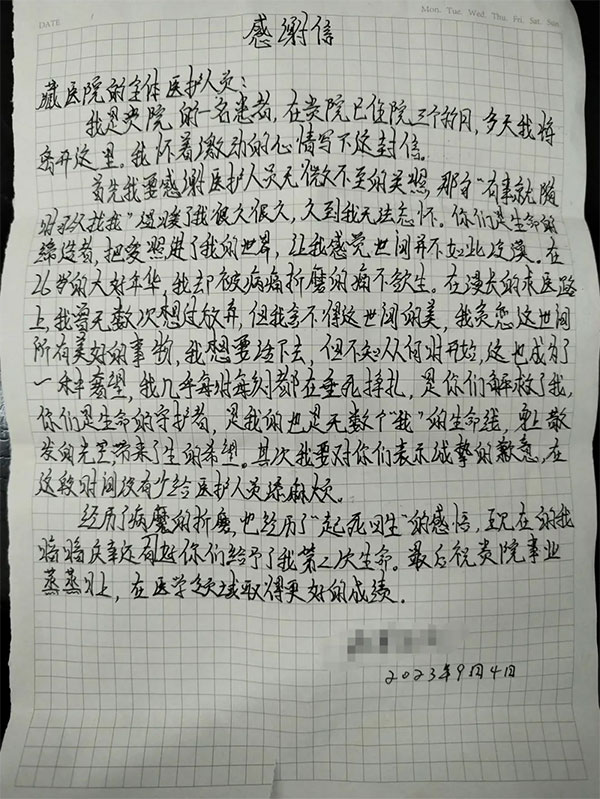 DATE
Mon. Tue. Wed. Thu. Fri. Sat. Sun.
感谢信
藏医院的全体医护人员：
我是贵院的一名患者，在贵院已住院三个初月，今天我将
离开这里。我怀着激动的心情写下这封信。
首先我要感谢医护人员无微不至的关照，那句“有事就随
时来找我”温暖了我很久很久，久到我无法忘怀。你们是生命的
缔造者，把爱照进了我的世界，让我感觉世间并不如此冷漠。在
26岁的大好年华，我却被病痛折磨的痛不欲生。在漫长的求医路
上，我曾无数次想过放弃，但我舍不得这世间的美，我贪恋这世间
所有美好的事物，我想要活下去，但不知从何时开始，这也成为了
一种奢望，我几乎每时每刻都在垂死挣扎，是你们解救了我，
你们是生命的守护者，是我的也是无数个“我”的生命线，身上散
发的光芒带来了生的希望。其次我要对你们表示诚挚的歉意，在
这段时间没有少给医护人员添麻烦。
经历了病魔的折磨，也经历了“起死回生”的感悟，至现在的我
暗暗庆幸还有好你们给予了我第二次生命。最后祝贵院事业
蒸蒸日上，在医学领域取得更好的成绩。
2023年9月4日